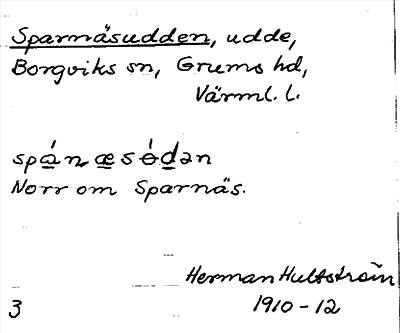 Sparnäsudden, udde,
Borgviks sn, Grums hd,
Värml. l.
spánæsódən
Norr om Sparnäs.
Herman Hultström
1910-12
3